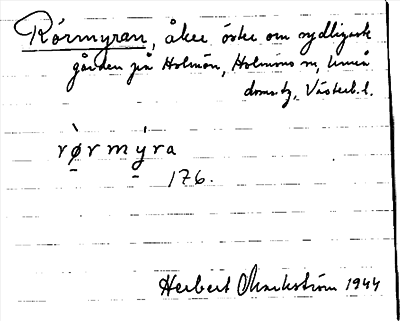 Rörmyran, åker öster om sydligaste
gården på Holmön, Holmöns sn, Umeå
doms. tg, Västerb. l.
rø̀rmýra
176.
Herbert Markström 1944